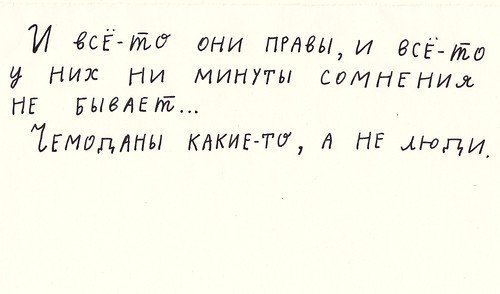 И всё-то они правы, и всё-то
у них ни минуты сомнения
не бывает...
Чемоданы какие-то, а не люди.